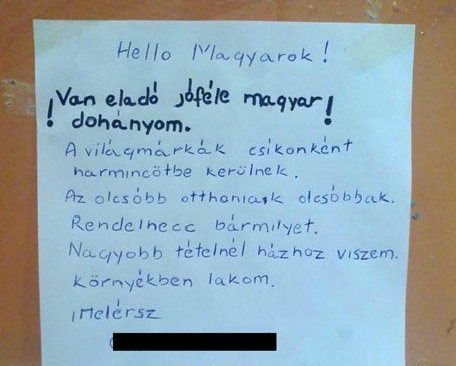 Hello Magyarok!
!Van eladó jóféle magyar!
dohányom.
A világmárkák csíkonként
harmincötbe kerülnek.
Az olcsóbb otthoniak olcsóbbak.
Rendelhecc bármilyet.
Nagyobb tételnél házhoz viszem.
Környékben lakom.
¡Melérsz